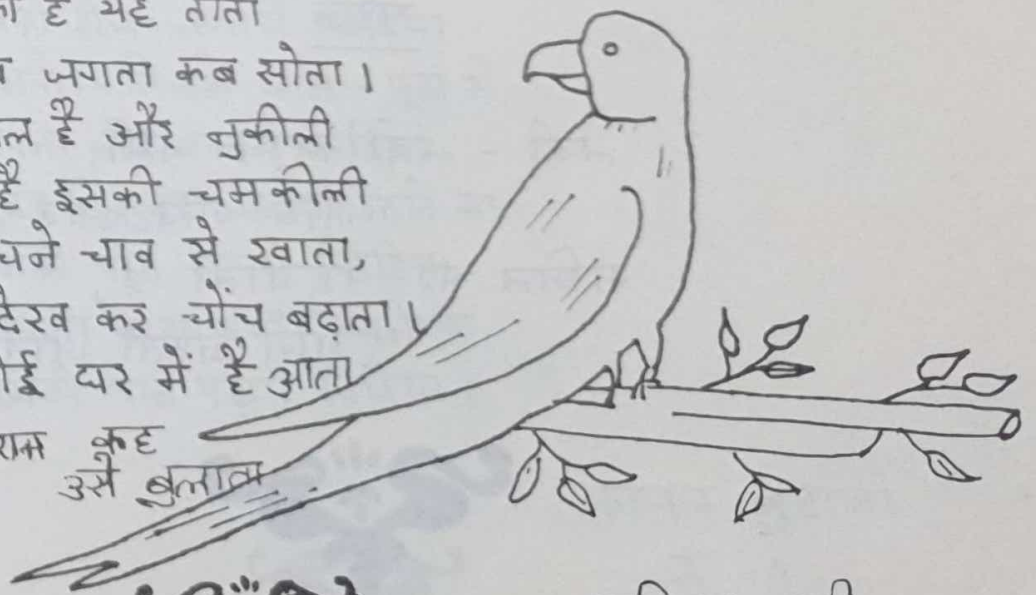 है यह तोता
जगता कब सोता।
है और नुकीली
है इसकी चमकीली
चने चाव से खाता,
देख कर चोंच बढ़ाता।
घर में है आता
कह
उसे बुलाता